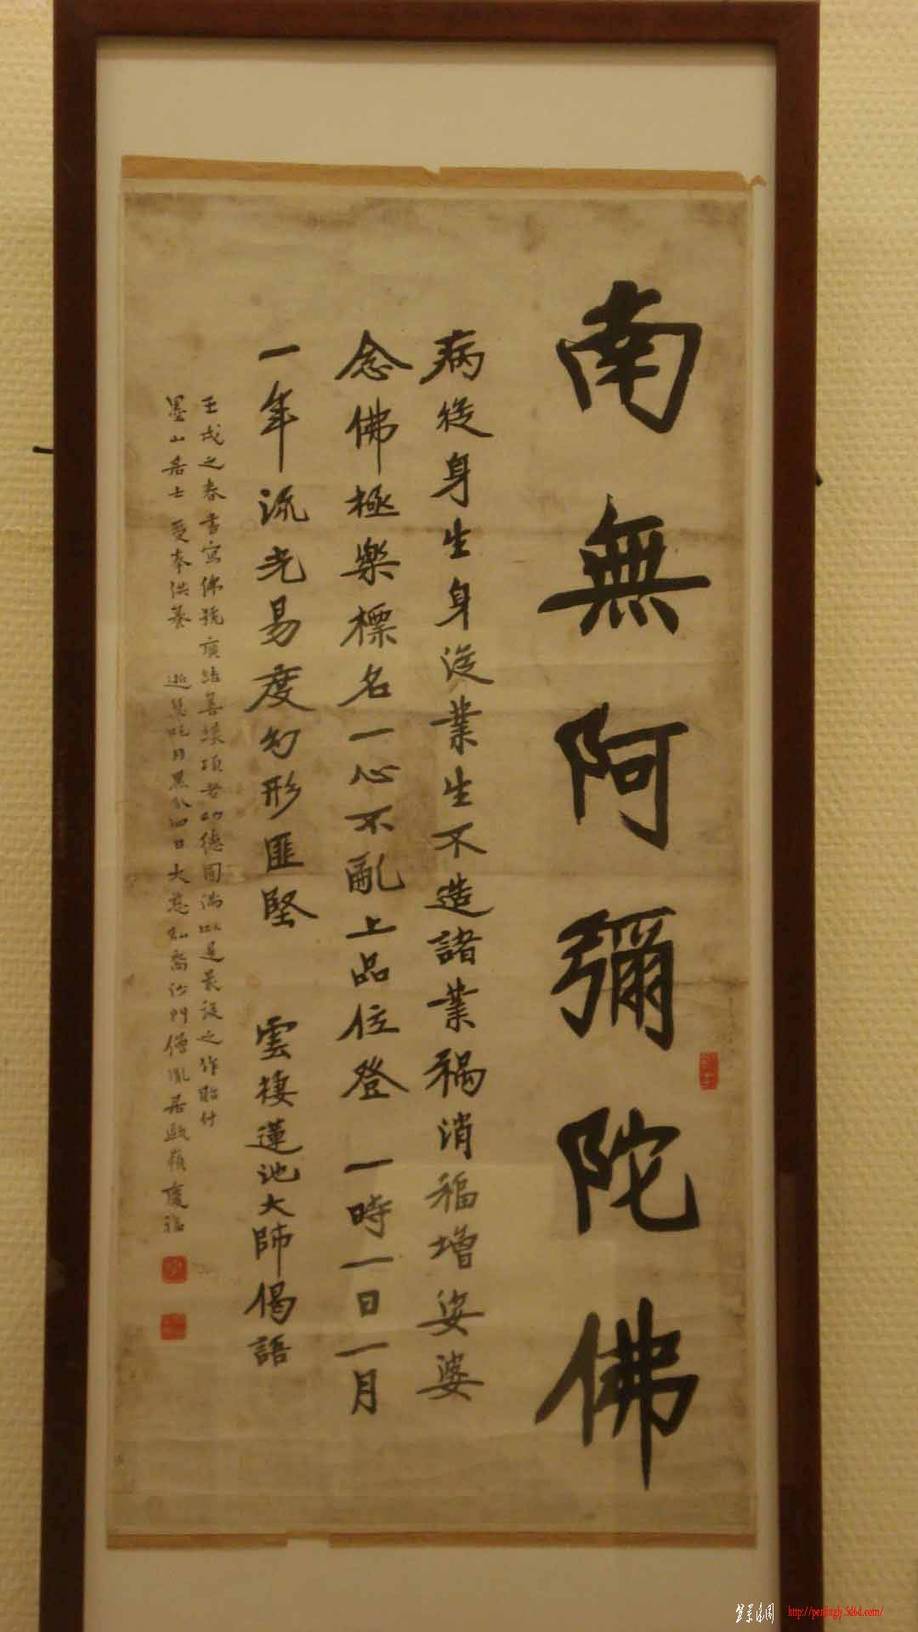 南無阿彌陀佛
病從身生身從業生不造諸業禍消福增娑婆
念佛極樂標名一心不亂上品位登 一時一日一月
一年流光易度幻形匪堅 雲棲蓮池大師偈語
壬戌之春書寫佛號廣結善緣項者功德圓滿此是最後之作貽付
墨山居士 受奉供養
http://penlingly.5d6d.com/